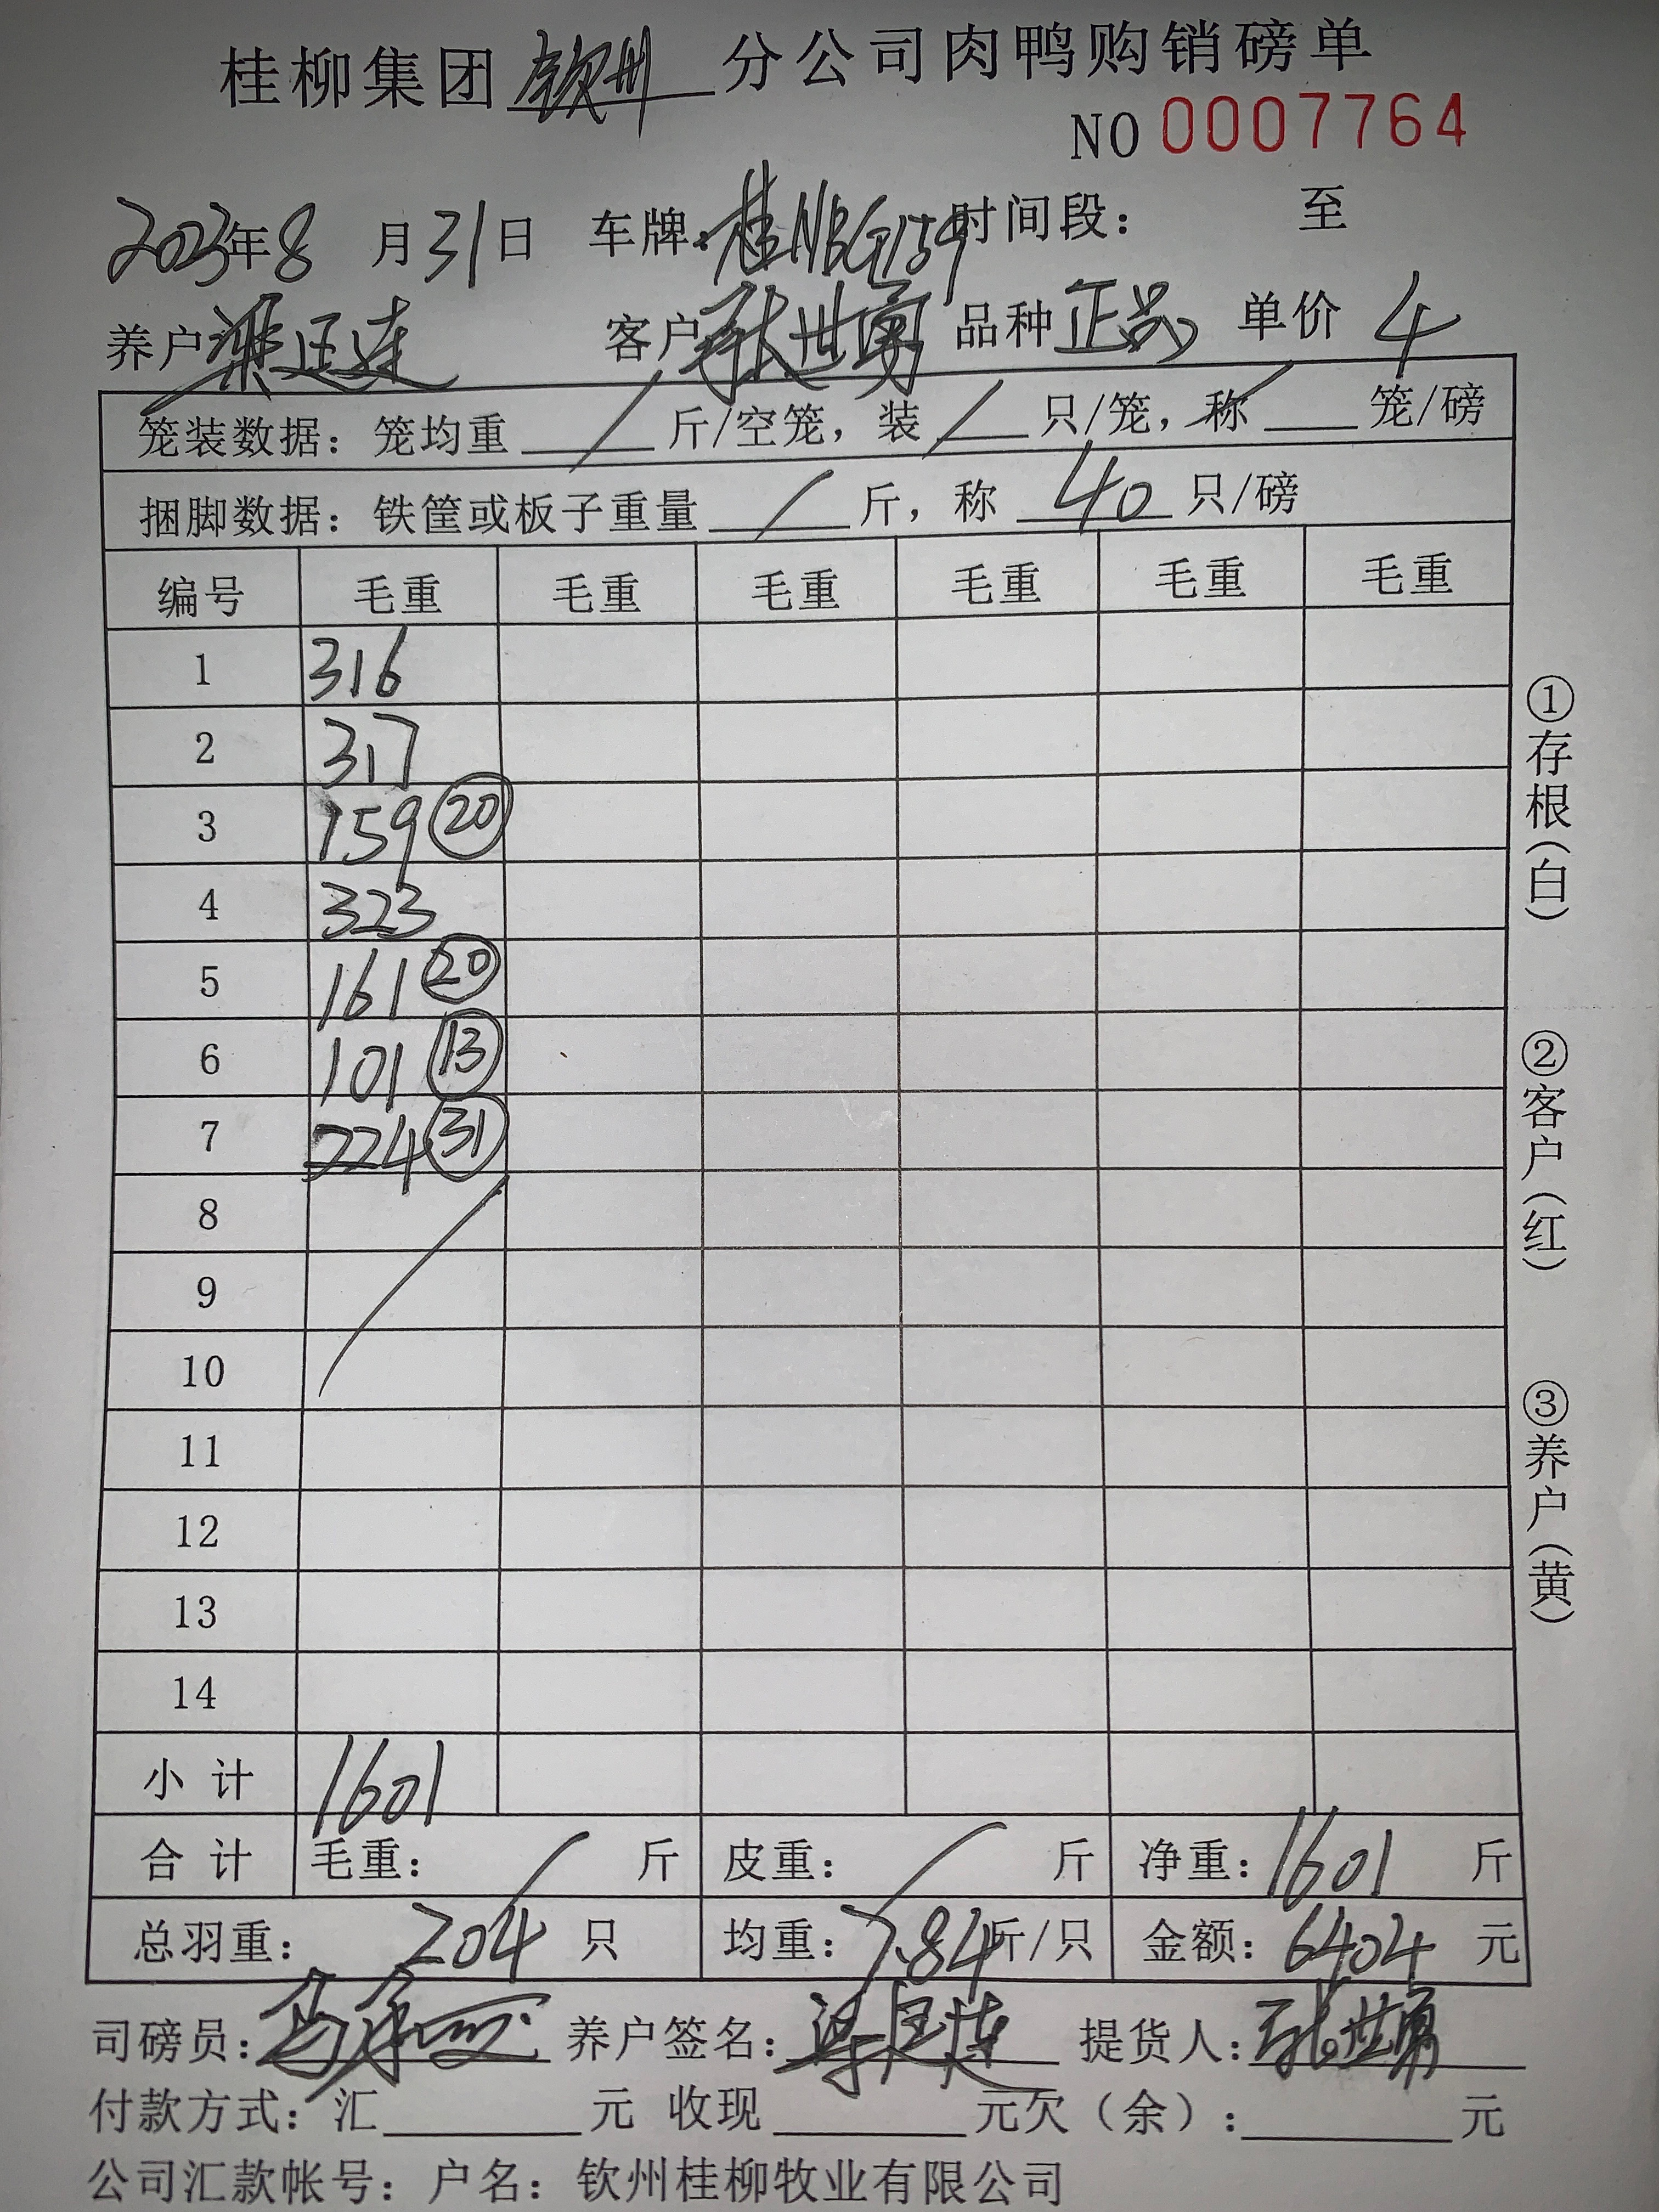 桂柳集团钦州分公司肉鸭购销磅单
NO 0007764
2023年8月31日 车牌:桂NBG159 时间段: 至
养户 梁廷连 客户 张世勇 品种 正品 单价 4
笼装数据: 笼均重 / 斤/空笼, 装 / 只/笼, 称 笼/磅
捆脚数据: 铁筐或板子重量 / 斤, 称 40 只/磅
编号 毛重 毛重 毛重 毛重 毛重 毛重
1 316
2 317
3 159 ⑳
4 323
5 161 ⑳
6 101 ⑬
7 224 ㉛
8
9
10
11
12
13
14
小计 1601
合计 毛重: / 斤 皮重: / 斤 净重: 1601 斤
总羽重: 204 只 均重: 7.84 斤/只 金额: 6404 元
司磅员: 养户签名: 梁廷连 提货人: 张世勇
付款方式: 汇 元 收现 元欠(余): 元
公司汇款帐号: 户名: 钦州桂柳牧业有限公司
①存根(白)
②客户(红)
③养户(黄)